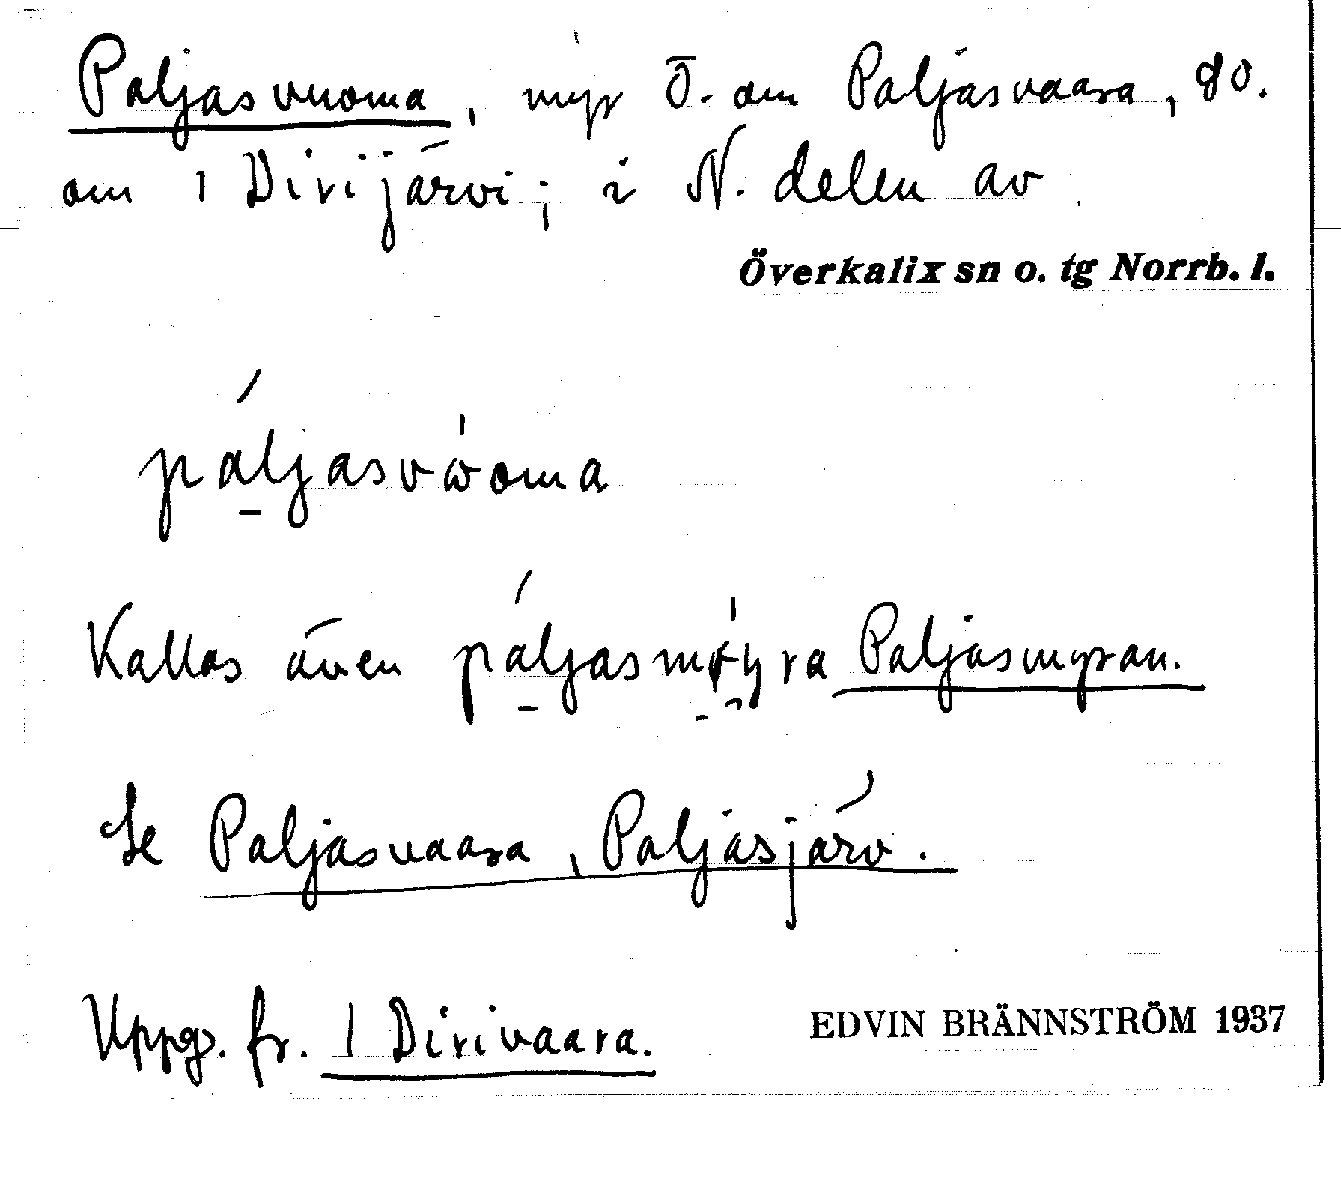 Paljasvuoma, myr Ö. om Paljasvaara, SO.
om 1 Dirijärvi; i N. delen av
Överkalix sn o. tg Norrb. l.
páljasvω̇oma
Kallas även páljasmøyra Paljasmyran.
Se Paljasvaara, Paljasjärv.
Uppg. fr. 1 Dirivaara.
EDVIN BRÄNNSTRÖM 1937